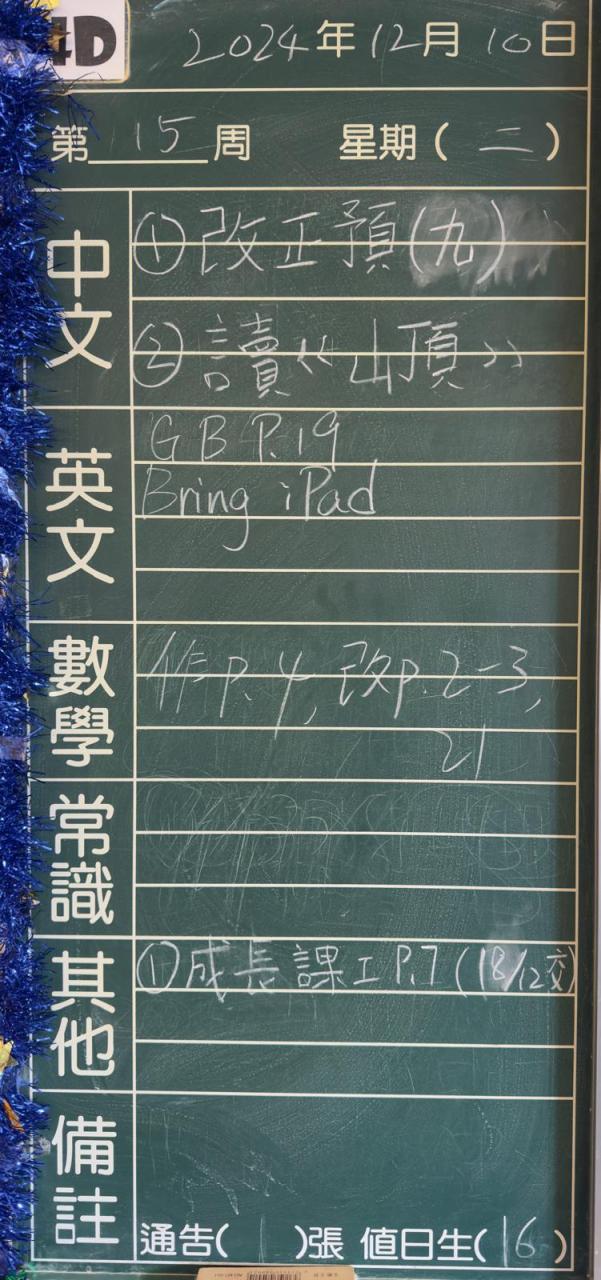 4D
2024年12月10日
第15周 星期(二)
中文
①改正預(九)
②讀《山頂》
英文
GB P.19
Bring iPad
數學
作P.4, 改P.2-3,
21
常識
其他
①成長課工P.7(18/12交)
備註
通告(1)張 值日生(16)